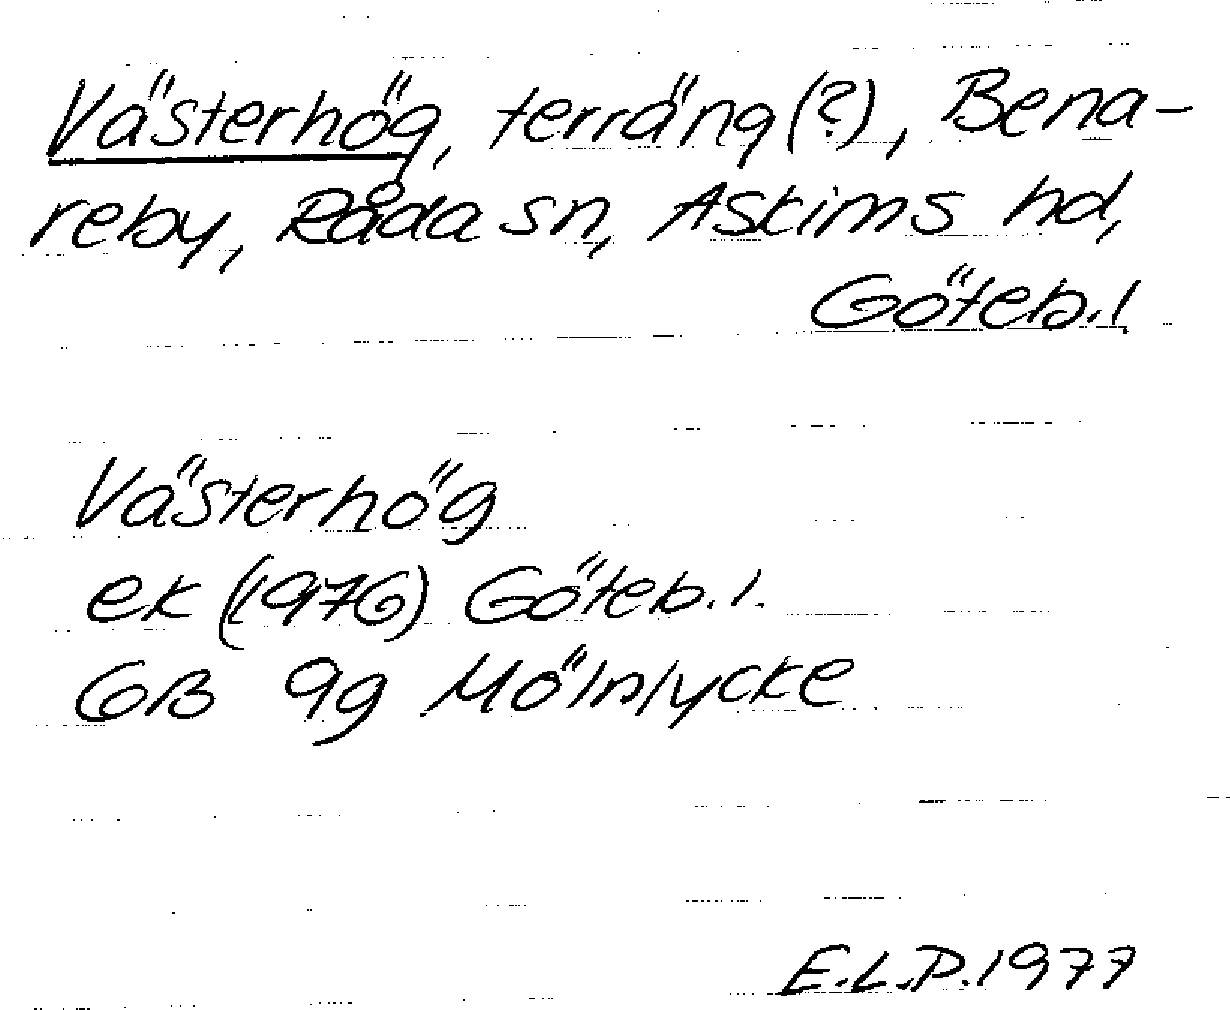 Västerhög, terräng (?), Bena-
reby, Råda sn, Askims hd,
Göteb.l
Västerhög
ek (1976) Göteb.l.
6B 9g Mölnlycke
E.L.P.1977